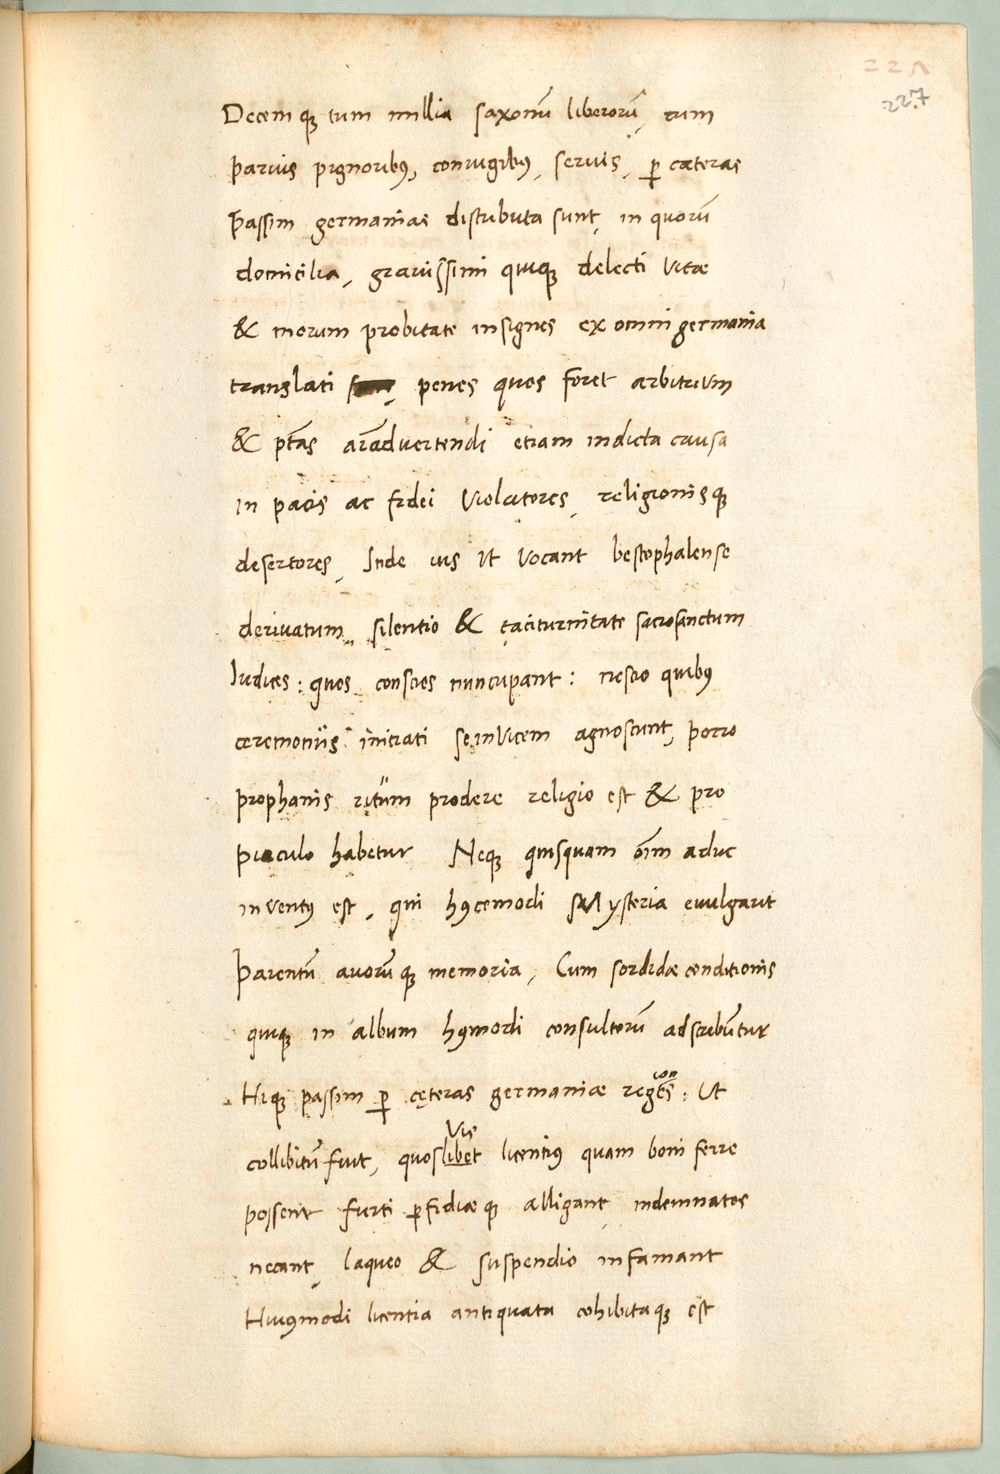 227
Decemq; tum millia saxonū liberorū, cum
paruis pignoribus, coniugibus, seruis, ꝑ cæteras
passim germanias distributa sunt, in quorū
domicilia, grauissimi quiq; delecti vitæ
& morum probitate insignes ex omni germania
translati penes quos foret arbitrium
& ptās aīaduertendi etiam indicta causa
in pacis ac fidei violatores, religionisq;
desertores, Inde ius ut vocant bestophalense
deriuatum, silentio & taciturnitate sacrosanctum
Iudices: quos conscios nuncupant: nescio quibus
ceremoniis initiati se inuicem agnoscunt, porro
prophanis ritum prodere religio est & pro
piaculo habetur Neq; quisquam oīm aduc
inventus est, qui hꝰcemodi Mysteria euulgarit
parentū auorūq; memoria, Cum sordidæ conditionis
quiq; in album hꝰmodi consultorū adscribūtur
Hiq; passim ꝑ cęteras germaniæ reg
collibitū fuit, quoslibet licentius quam boni ferre
vis
possent furti ꝑfidiæq; alligant, indemnatos
necant, laqueo & suspendio infamant
Huiꝰmodi licentia antiquata cohibitaq; est